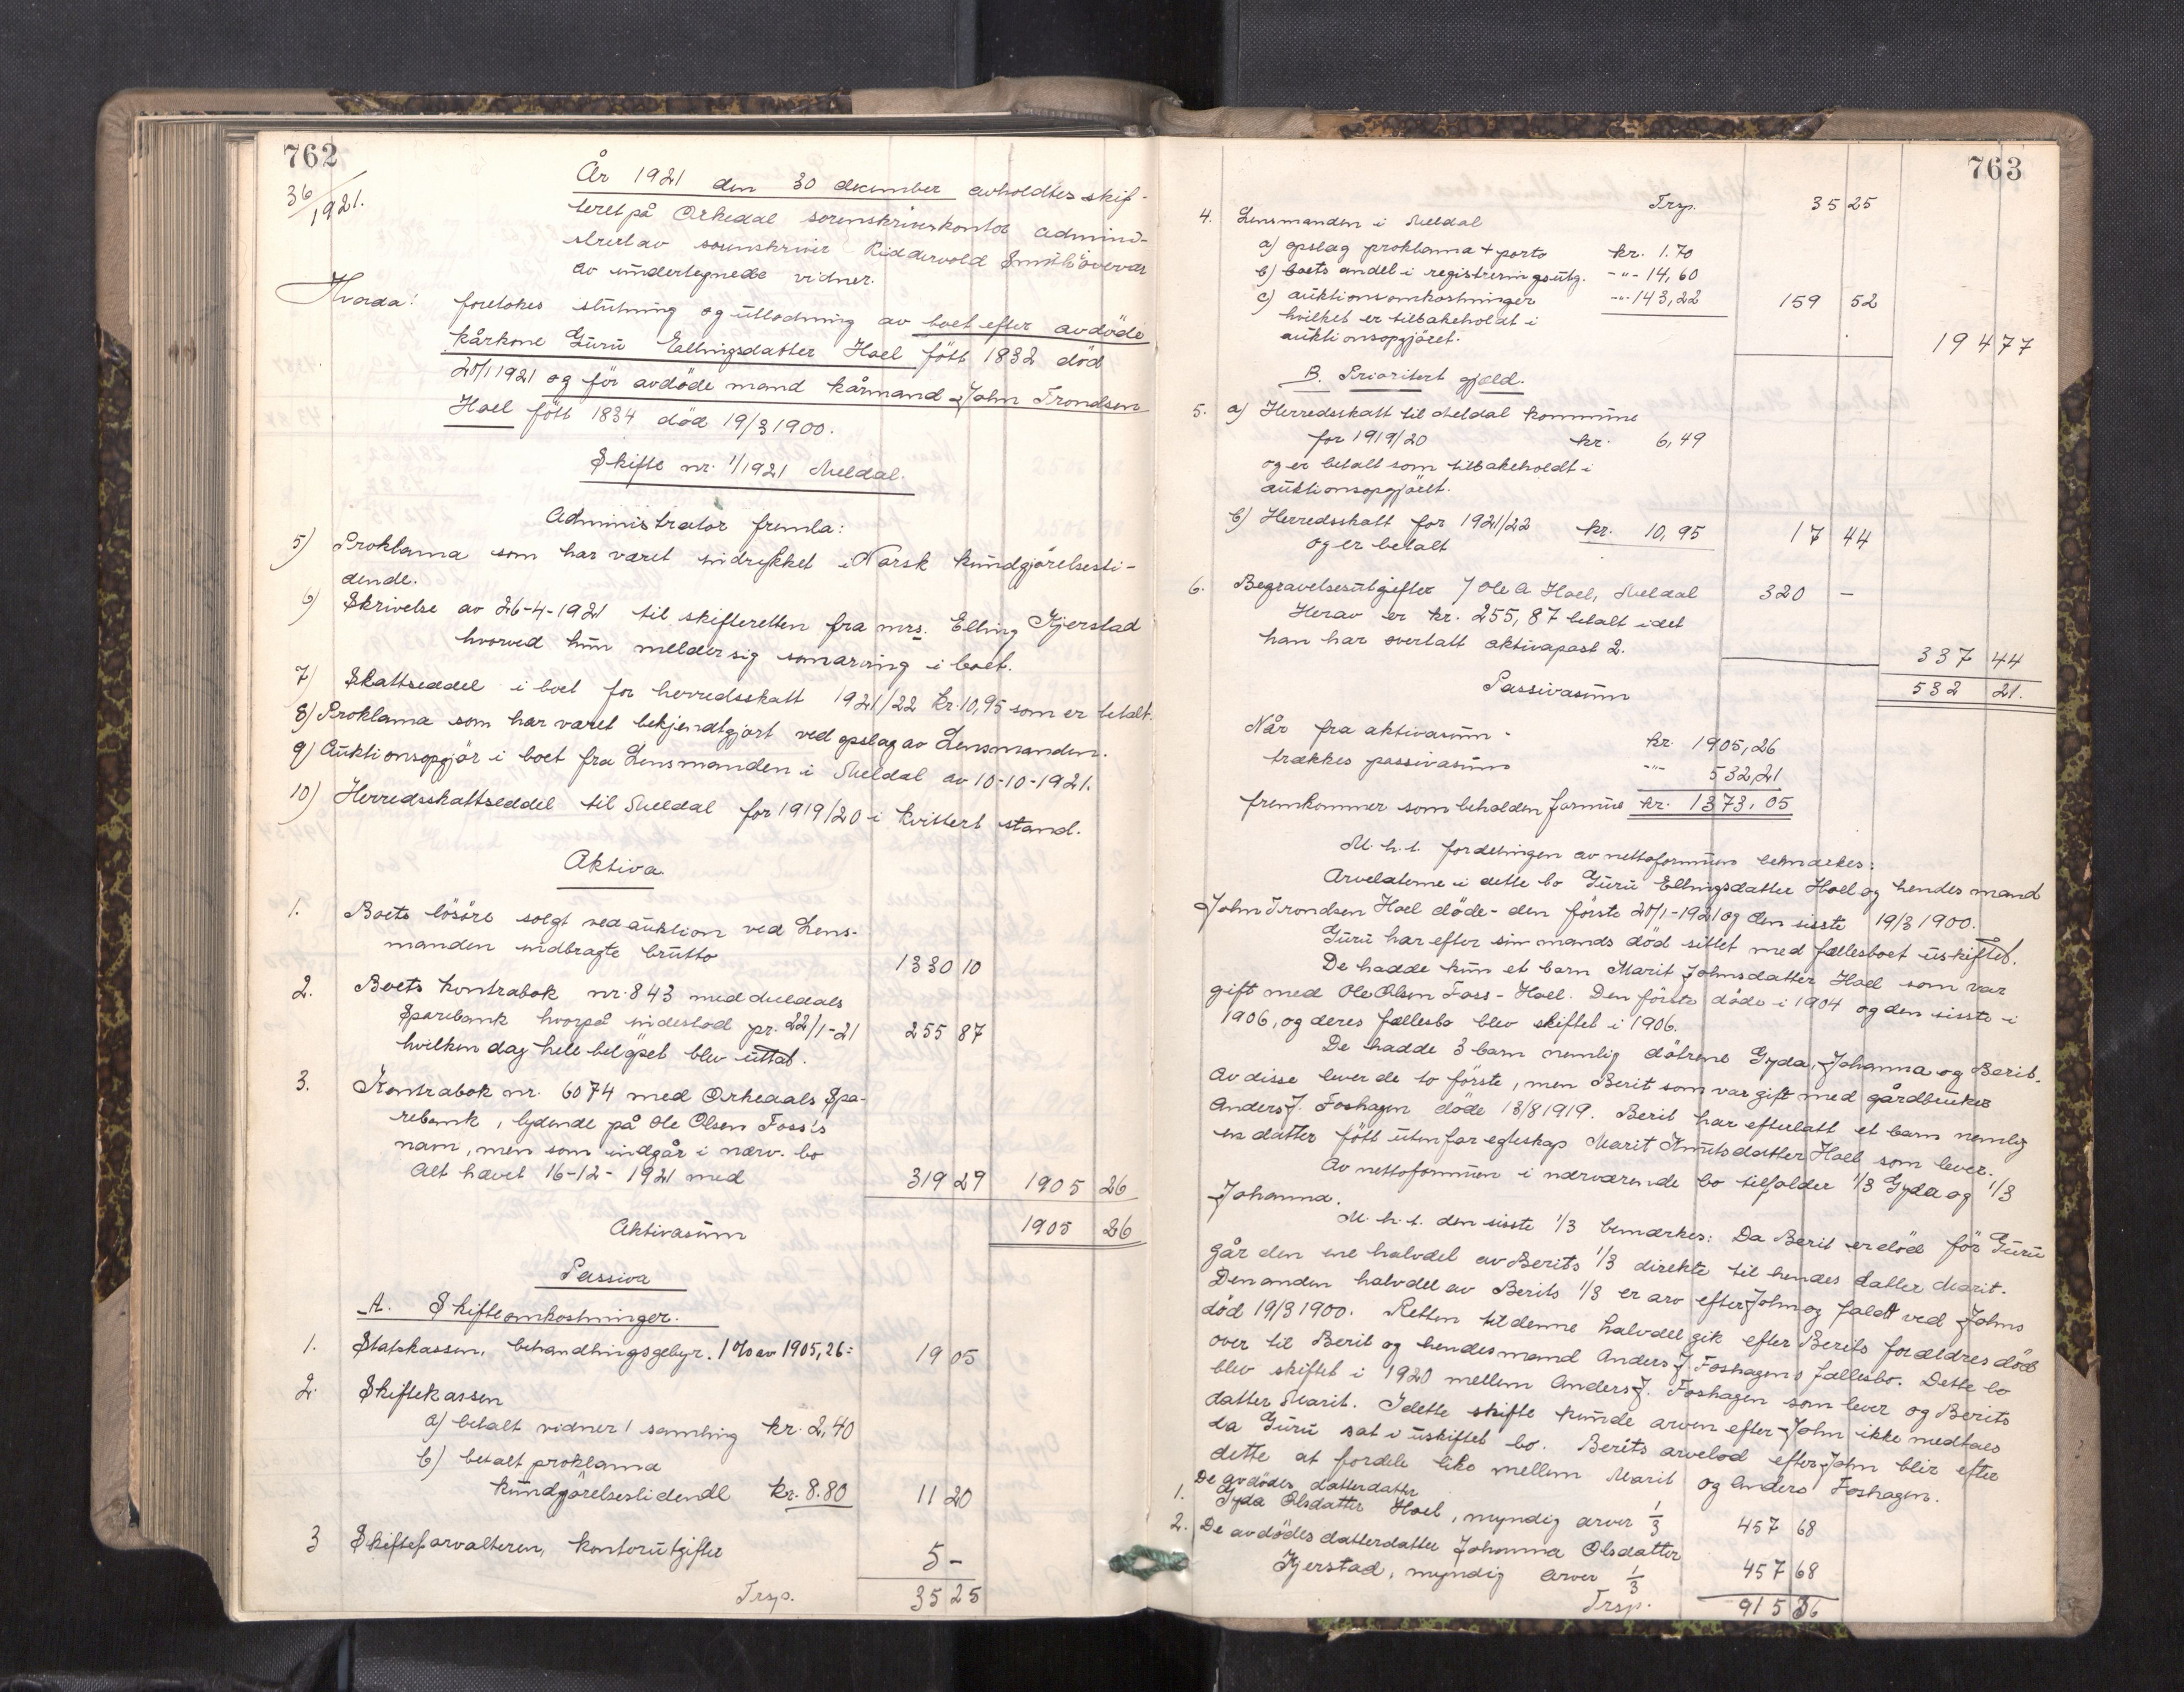 762
36/1921.
År 1921 den 30 december avholdtes skif-
teret på Orkedal sorenskriverkontor admini-
strert av sorenskriver Riddervold i overvær
av undertegnede vidner.
Hvorda: foretokes slutning og utlodning av boet efter avdöde
kårkone Guru Ellingsdatter Hoel fött 1832 död
20/1 1921 og för avdöde mand kårmand John Trondsen
Hoel fött 1834 död 19/3 1900.
Skifte nr. 1/1921 Meldal.
Administrator fremla:
5) Proklama som har været indrykket i Norsk kundgjörelsesti-
dende.
6) Skrivelse av 26-4-1921 til skifteretten fra mrs. Elling Kjerstad
hvorved hun melder sig som arving i boet.
7) Skattseddel i boet for herredsskatt 1921/22 kr. 10,95 som er betalt.
8) Proklama som har været bekjendtgjort ved opslag av Lensmanden.
9) Auktionsopgjör i boet fra Lensmanden i Meldal av 10-10-1921.
10) Herredsskattseddel til Meldal for 1919/20 i kvittert stand.
Aktiva.
1. Boets lösöre solgt ved auktion ved Lens-
manden indbragte brutto 1330 10
2. Boets kontrabok nr. 843 med Meldals
Sparebank hvorpå indestod pr. 22/1-21 255 87
hvilken dag hele belöpet blev uttat.
3. Kontrabok nr. 6074 med Orkedals Spa-
rebank, lydende på Ole Olsen Foss's
navn, men som indgår i nærv. bo
Alt hævet 16-12-1921 med 319 29 1905 26
Aktivasum 1905 26
Passiva
A. Skifteomkostninger.
1. Statskassen, behandlingsgebyr. 1 % av 1905,26: 19 05
2. Skiftekassen
a) betalt vidner 1 samling kr. 2,40
b) betalt proklama
kundgjörelsestidende kr. 8.80 11 20
3 Skifteforvalteren, kontorutgifter 5 -
Trsp. 35 25
763
Trsp. 35 25
4. Lensmanden i Meldal
a) opslag proklama + porto kr. 1.70
b) boets andel i registreringsutg. -"- 14,60
c) auktionsomkostninger -"- 143,22 159 52
hvilket er tilbakeholdt i
auktionsopgjöret. 194 77
B. Prioritert gjeld.
5. a) Herredsskatt til Meldal kommune
for 1919/20 kr. 6,49
og er betalt som tilbakeholdt i
auktionsopgjöret.
b) Herredsskatt for 1921/22 kr. 10,95 17 44
og er betalt
6. Begravelsesutgifter / Ole A Hoel, Meldal 320 -
Herav er kr. 255,87 betalt idet
han har overtatt aktivapost 2. 337 44
Passivasum 532 21.
Når fra aktivasum - kr. 1905,26
trækkes passivasum -"- 532,21
fremkommer som beholden formue kr. 1373,05
M. h. t. fordelingen av nettoformuen bemærkes:
Arvelaterne i dette bo Guru Ellingsdatter Hoel og hendes mand
John Trondsen Hoel döde - den förste 20/1-1921 og den sisste 19/3 1900.
Guru har efter sin mands död sittet med fællesboet uskiftet.
De hadde kun et barn Marit Johnsdatter Hoel som var
gift med Ole Olsen Foss-Hoel. Den förste döde i 1904 og den sisste i
1906, og deres fællesbo blev skiftet i 1906.
De hadde 3 barn nemlig dötrene Gyda, Johanna og Berit.
Av disse lever de to förste, men Berit som var gift med gårdbruker
Anders J. Foshagen döde 13/8 1919. Berit har efterlatt et barn nemlig
en datter fött utenfor egteskap Marit Knutsdatter Hoel som lever.
Av nettoformuen i nærværende bo tilfalder 1/3 Gyda og 1/3
Johanna.
M. h. t. den sisste 1/3 bemærkes: Da Berit er död för Guru
går den ene halvdel av Berits 1/3 direkte til hendes datter Marit.
Den anden halvdel av Berits 1/3 er arv efter John og faldt ved Johns
död 19/3 1900. Retten til denne halvdel gik efter Berits forældres död
over til Berit og hendes mand Anders J. Foshagens fællesbo. Dette bo
blev skiftet i 1920 mellem Anders J. Foshagen som lever og Berits
datter Marit. I dette skifte kunde arven efter John ikke medtaes
da Guru sat i uskiftet bo. Berits arvelod efter John blir efter
dette at fordele like mellem Marit og Anders Foshagen.
De avdödes datterdatter
1. Gyda Olsdatter Hoel, myndig arver 1/3 457 68
2. De avdödes datterdatter Johanna Olsdatter
Kjerstad, myndig arver 1/3 457 68
Trsp. 915 36